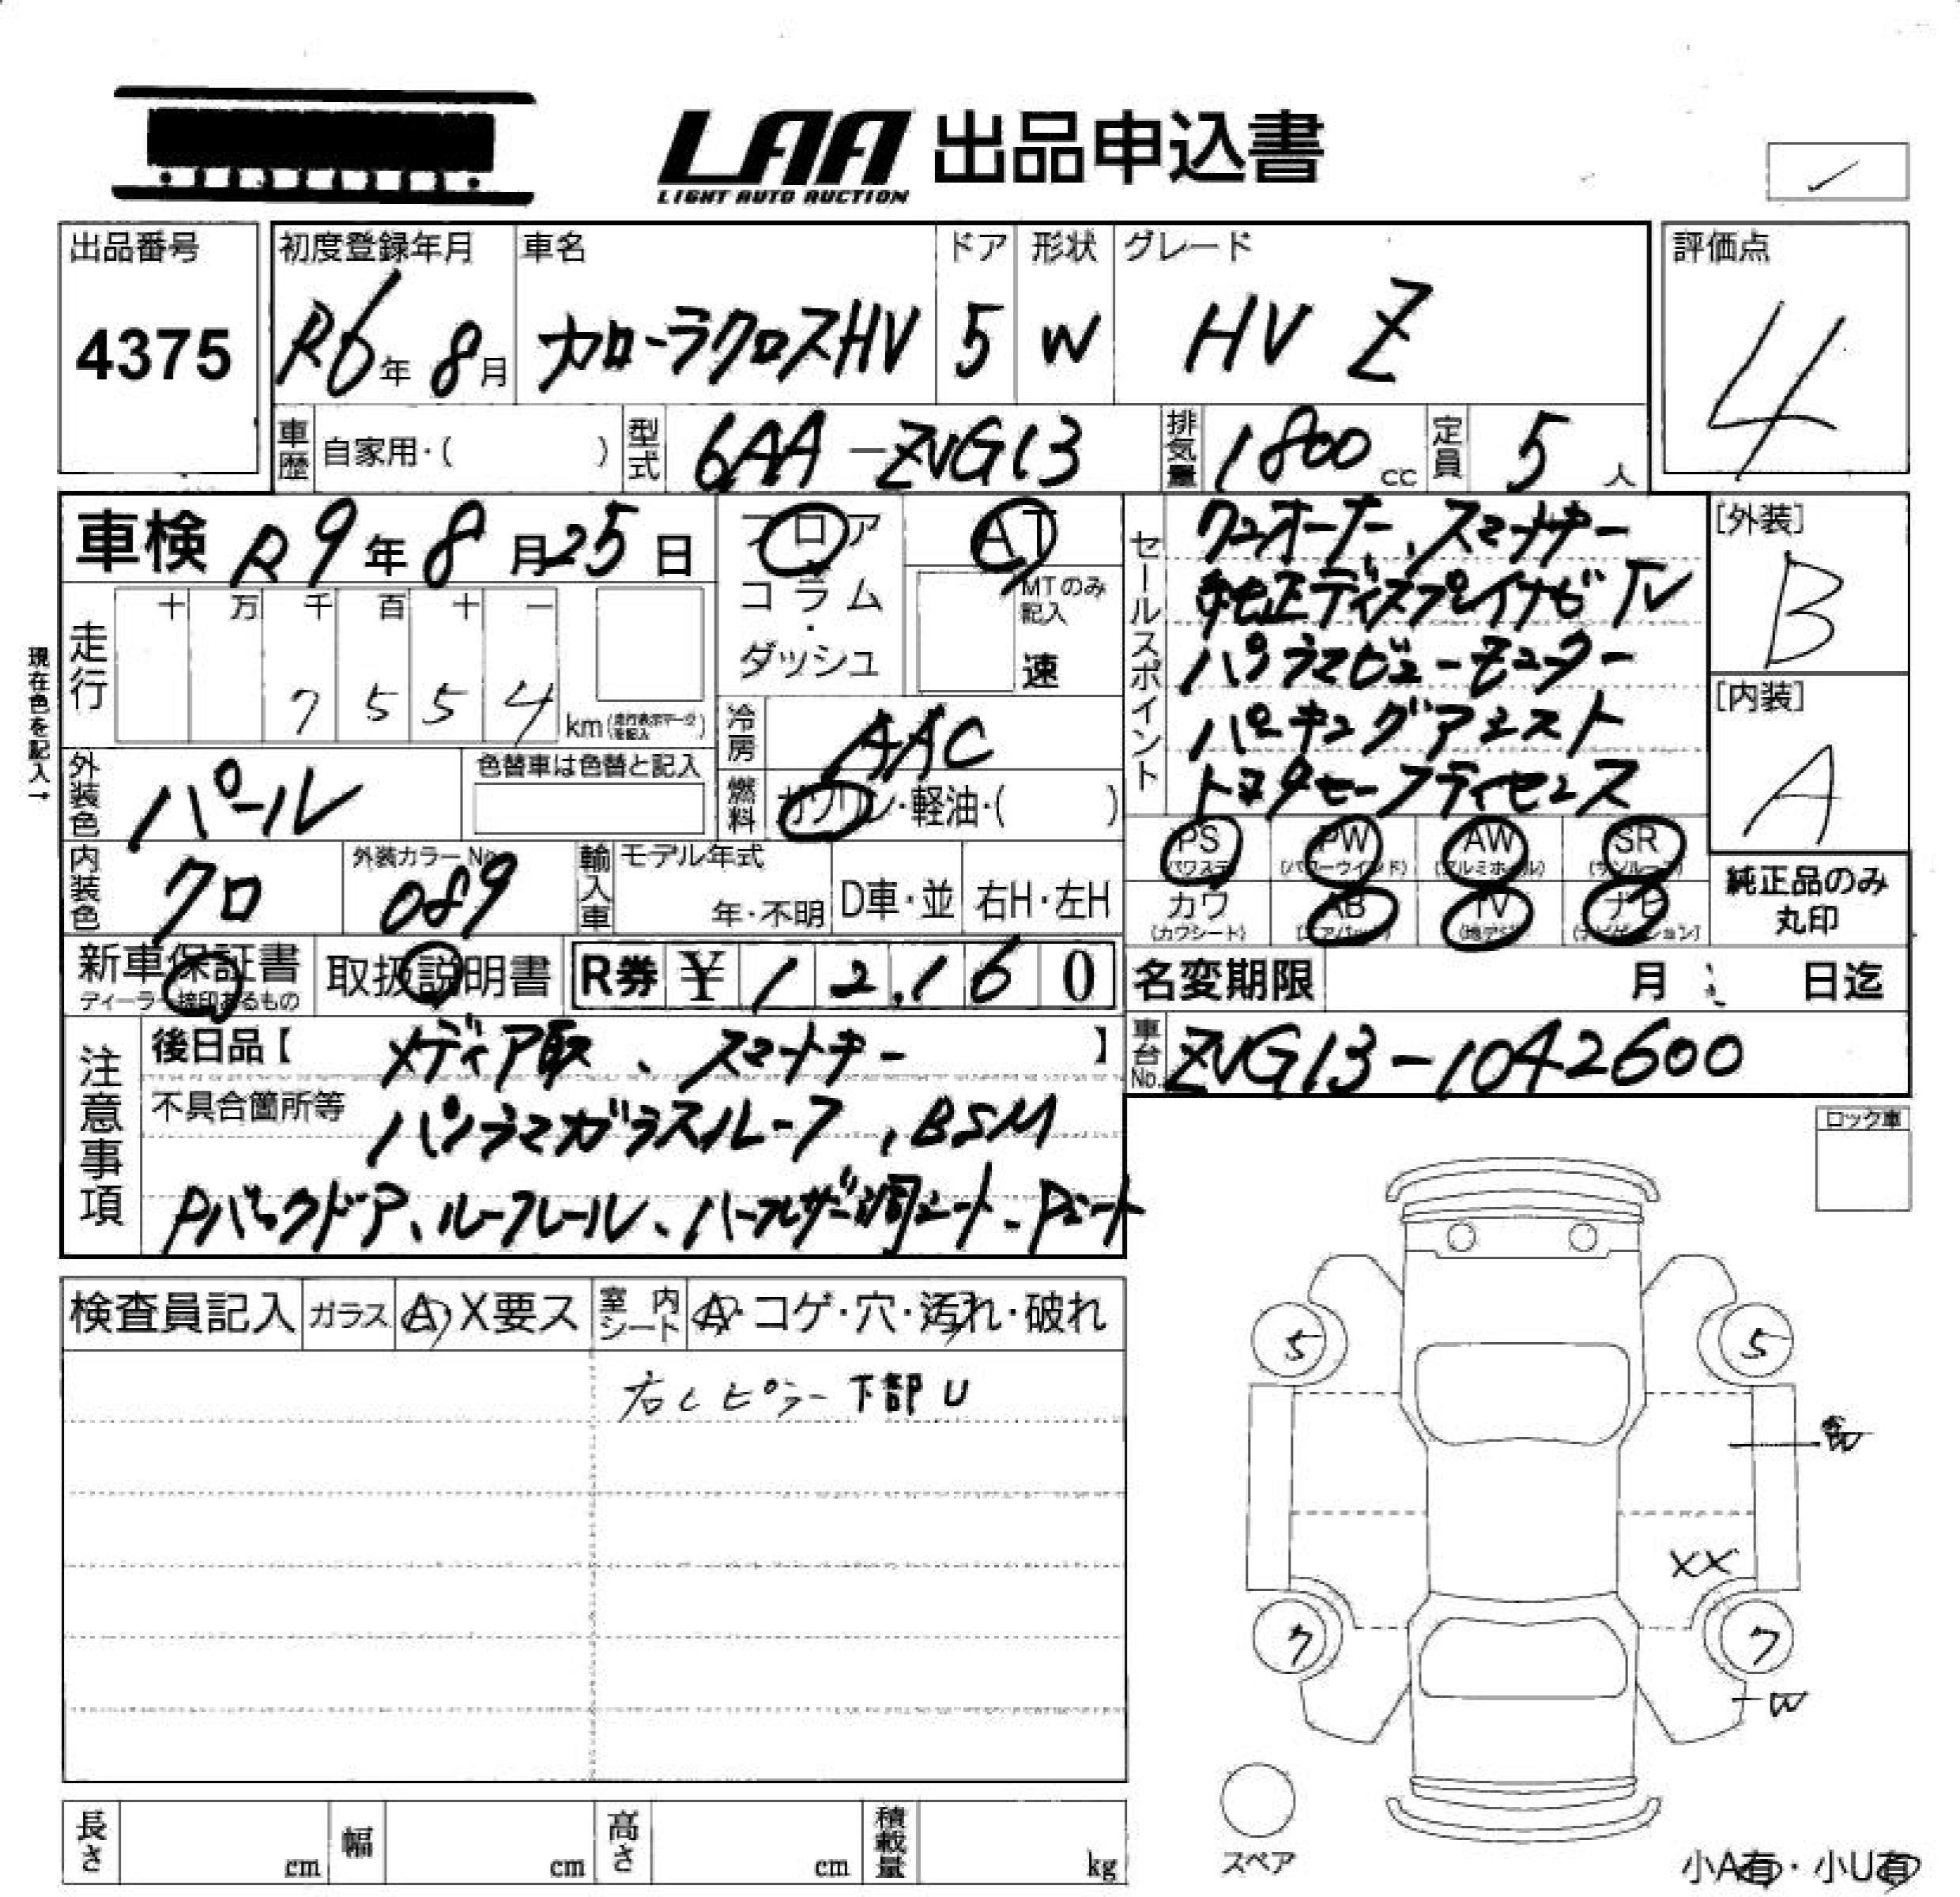 LAA 出品申込書
LIGHT AUTO AUCTION
出品番号
4375
初度登録年月
R6年 8月
車名
カローラクロスHV
ドア
5
形状
W
グレード
HV Z
評価点
4
車歴 自家用・( )
型式 6AA-ZVG13
排気量 1800 cc
定員 5 人
車検 R9年8月25日
フロア
コラム
・
ダッシュ
AT
MTのみ
記入
速
セールスポイント
ワンオーナー、スマートキー
純正ディスプレイナビTV
パノラマビューモニター
パーキングアシスト
トヨタセーフティセンス
[外装]
B
[内装]
A
現在色を記入→
走行
十 万 千 百 十 一
7 5 5 4
km
冷房 AAC
燃料 ガソリン・軽油・( )
外装色 パール
色替車は色替と記入
内装色 クロ
外装カラーNo.
089
輸入車
モデル年式
年・不明
D車・並
右H・左H
PS
(パワステ)
PW
(パワーウインド)
AW
(アルミホイル)
SR
(サンルーフ)
カワ
(カワシート)
AB
(エアバッグ)
TV
(地デジ)
ナビ
(ナビゲーション)
純正品のみ
丸印
新車保証書
ディーラー捺印あるもの
取扱説明書
R券 ¥ 12,160
名変期限 月 日迄
注意事項
後日品【 メディア取、スマートキー 】
不具合箇所等 パノラマガラスルーフ、BSM
Pバックドア、ルーフレール、ハーフレザー調シート、Pシート
車台No. ZVG13-1042600
ロック車
検査員記入
ガラス A X要ス
室内シート A・コゲ・穴・汚れ・破れ
右Cピラー下部U
5
5
XX
7
7
W
スペア
長さ cm
幅 cm
高さ cm
積載量 kg
小A有・小U有